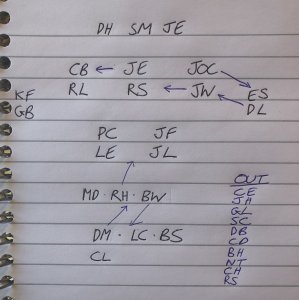 DH SM JE
CB ← JE JOC
RL RS ← JW ES
KF DL
GB
PC JF
LE JL
MD · RH · BW
DM · LC · BS
CL
OUT
CE
JH
GL
SC
DB
CD
BH
NT
CH
RS